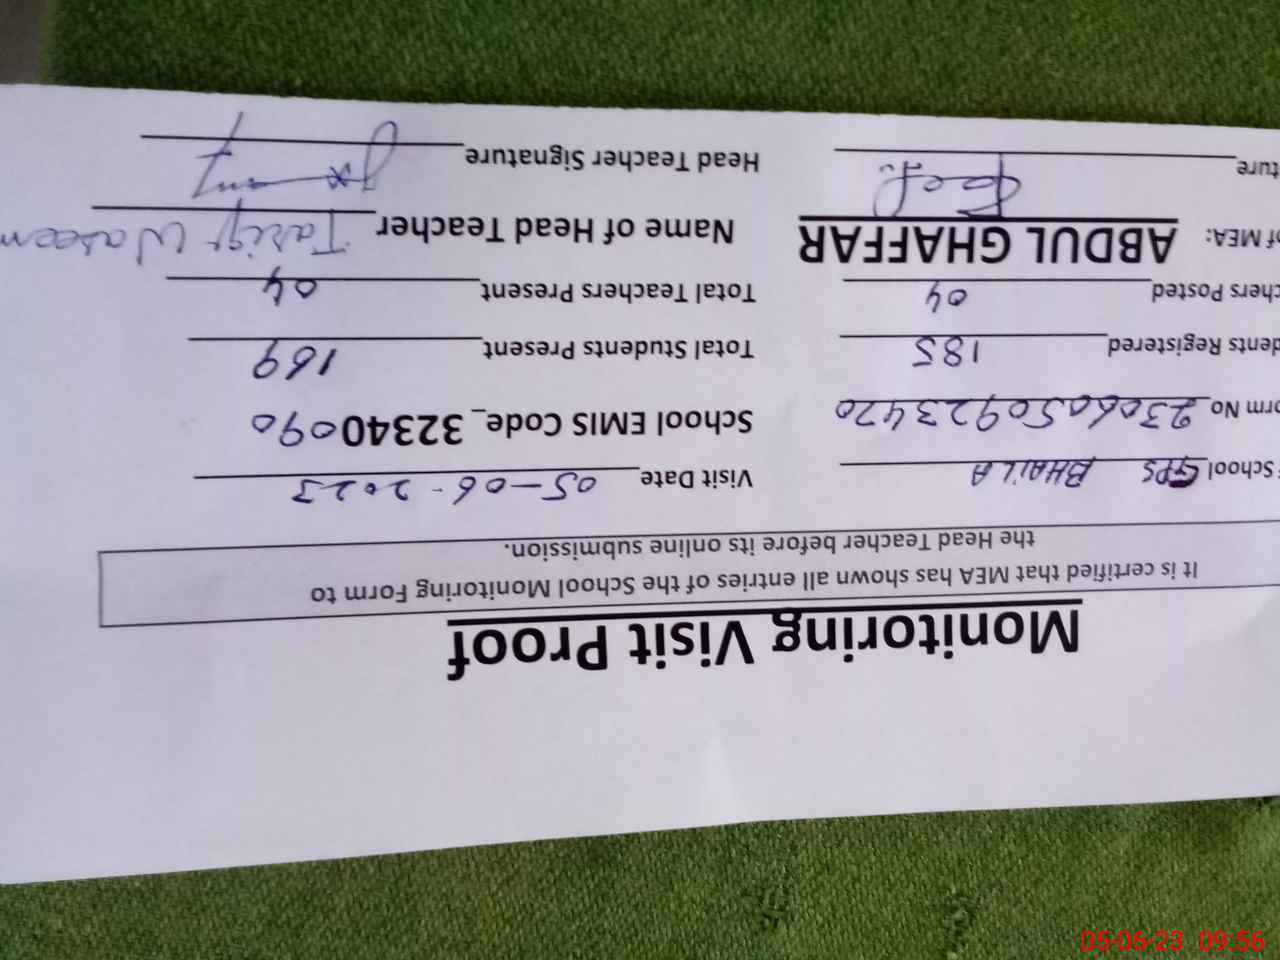 Monitoring Visit Proof
It is certified that MEA has shown all entries of the School Monitoring Form to
the Head Teacher before its online submission.
School GPS BHAILA Visit Date 05-06-2023
orm No 2306050923420 School EMIS Code_ 32340090
dents Registered 185 Total Students Present 169
chers Posted 04 Total Teachers Present 04
of MEA: ABDUL GHAFFAR Name of Head Teacher Tariq Waseem
ture Head Teacher Signature
05-06-23 09:56